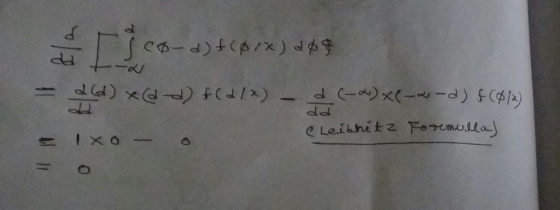 d/dd [ ∫_{-∞}^{d} (ϕ-d) f(ϕ/x) dϕ
= d(d)/dd × (d-d) f(d/x) - d/dd (-∞) × (-∞-d) f(ϕ/x)
= 1 × 0 - 0 (Leibnitz Formulla)
= 0